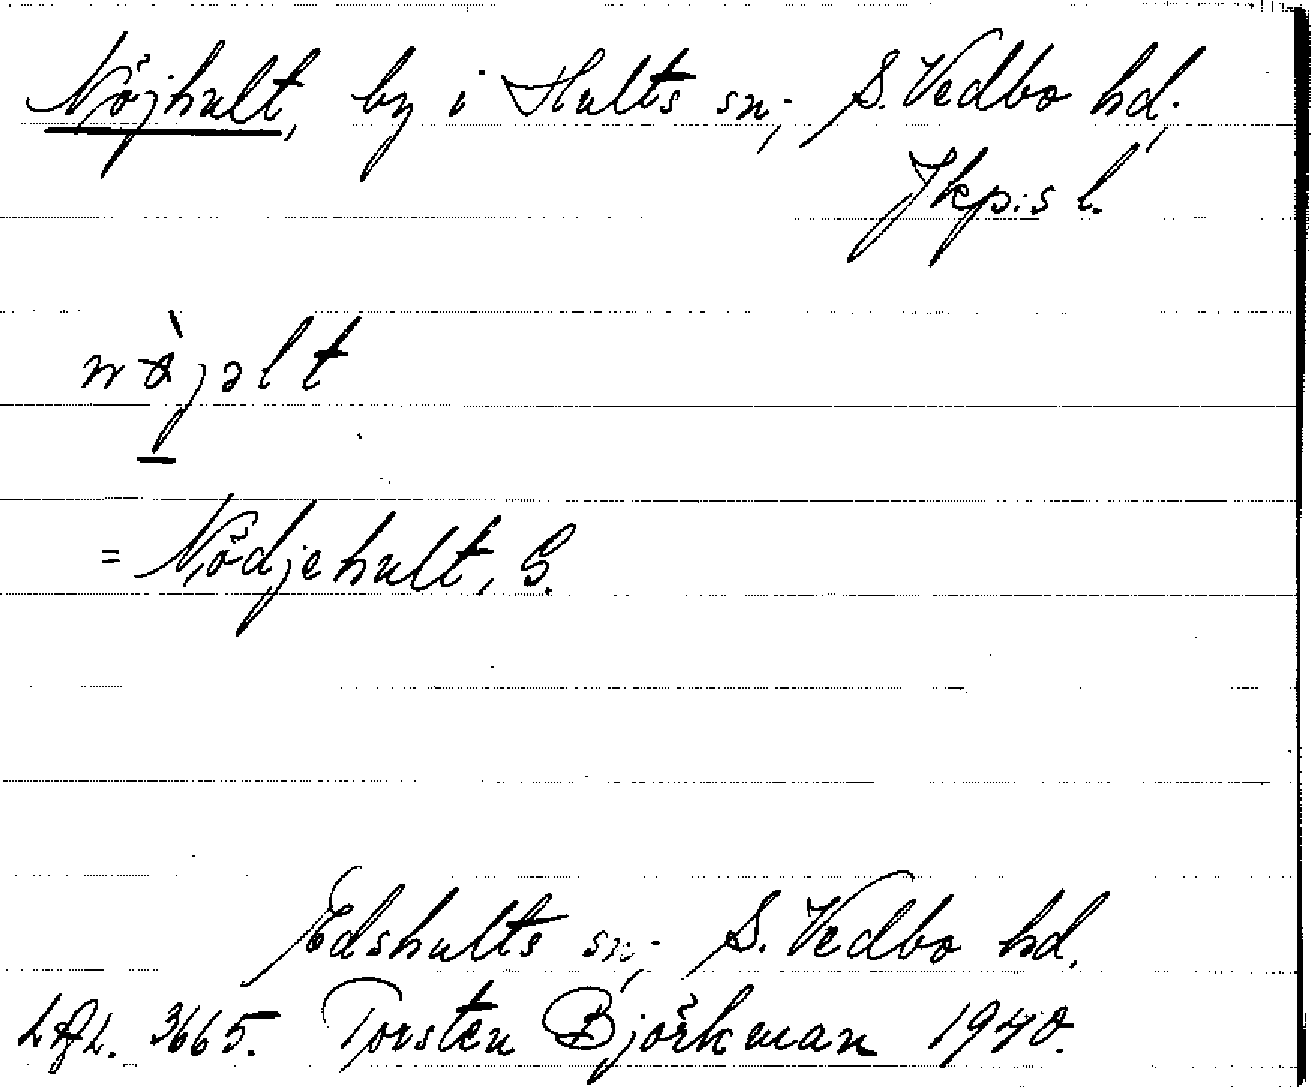 Nöjhult, by i Hults sn, S. Vedbo hd,
Jkp:s l.
= Nödjehult, G.
Edshults sn, S. Vedbo hd.
3665. Torsten Björkman 1940.